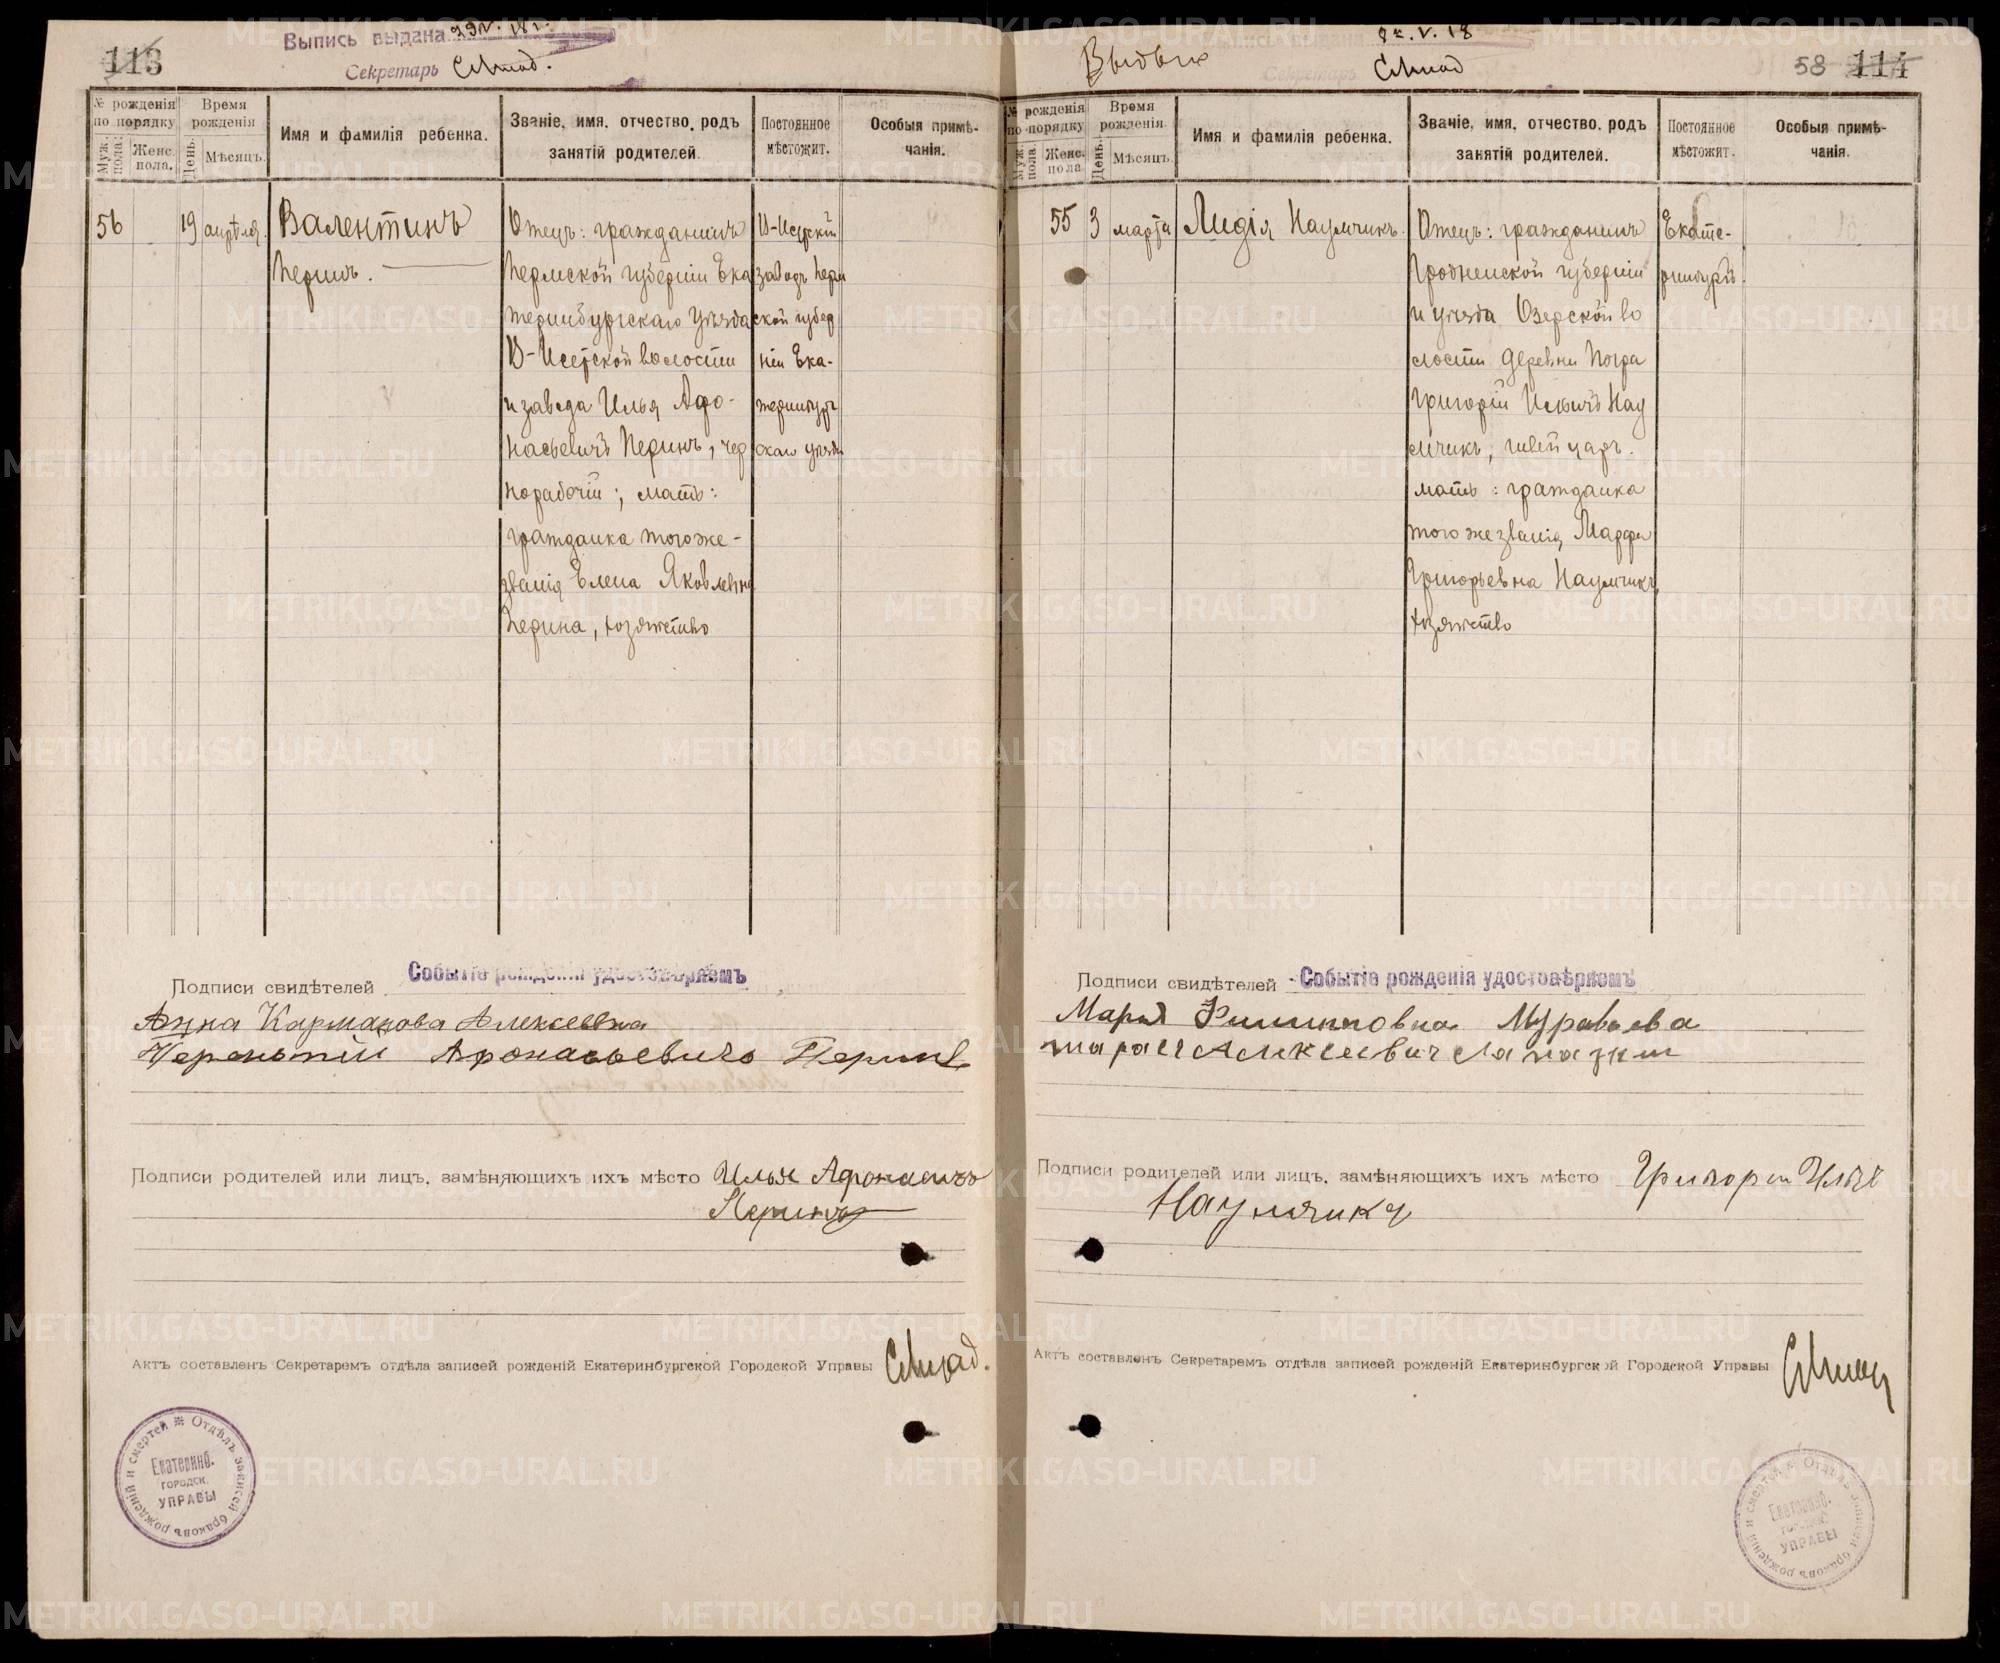 113
Выпись выдана 29 V. 18 г.
Секретарь
№ рожденія по порядку
Муж. пола.
Женс. пола.
Время рожденія
День.
Мѣсяцъ.
Имя и фамилія ребенка.
Званіе, имя, отчество, родъ занятій родителей.
Постоянное мѣстожит.
Особыя примѣчанія.
56
19
апрѣля
Валентинъ
Перинъ.
Отецъ: гражданинъ
Пермской губерніи Ека
теринбургскаго уѣзда
В-Исетской волости
и завода Илья Афо-
насьевичъ Перинъ, чер
норабочій; мать:
гражданка того же-
званія Елена Яковлевна
Перина, хозяйство
В-Исетскій
заводъ Перм
ской губер
ніи Ека-
теринбург
скаго уѣзда
Подписи свидѣтелей
Событіе рожденія удостовѣряемъ
Анна Кармакова Алексеевна
Афонасьевичъ Перинъ
Подписи родителей или лицъ, замѣняющихъ ихъ мѣсто Илья Афонасичъ
Перинъ
Актъ составленъ Секретаремъ отдѣла записей рожденій Екатеринбургской Городской Управы
Отдѣлъ записей браковъ рожденій и смертей
Екатеринб.
ГОРОДСК.
УПРАВЫ
58 114
V. 18
Секретарь
№ рожденія по порядку
Муж. пола.
Женс. пола
Время рожденія
День.
Мѣсяцъ.
Имя и фамилія ребенка.
Званіе, имя, отчество, родъ занятій родителей.
Постоянное мѣстожит.
Особыя примѣчанія.
55
3
марта
Лидія Наумчикъ.
Отецъ: гражданинъ
Гродненской губерніи
и уѣзда Озерской во
лости деревни Погра
Григорій Ильичъ Нау
мчикъ, швейцаръ.
мать: гражданка
того же званія Марфа
Григорьевна Наумчикъ,
хозяйство
Екате-
ринбургъ.
Подписи свидѣтелей
Событіе рожденія удостовѣряемъ
Марья Филипповна Муравьева
Тарас Алексеевич
Подписи родителей или лицъ, замѣняющихъ ихъ мѣсто Григори Ильич
Наумчикъ
Актъ составленъ Секретаремъ отдѣла записей рожденій Екатеринбургской Городской Управы
Отдѣлъ записей браковъ рожденій и смертей
Екатеринб.
ГОРОДСК.
УПРАВЫ
METRIKI.GASO-URAL.RU